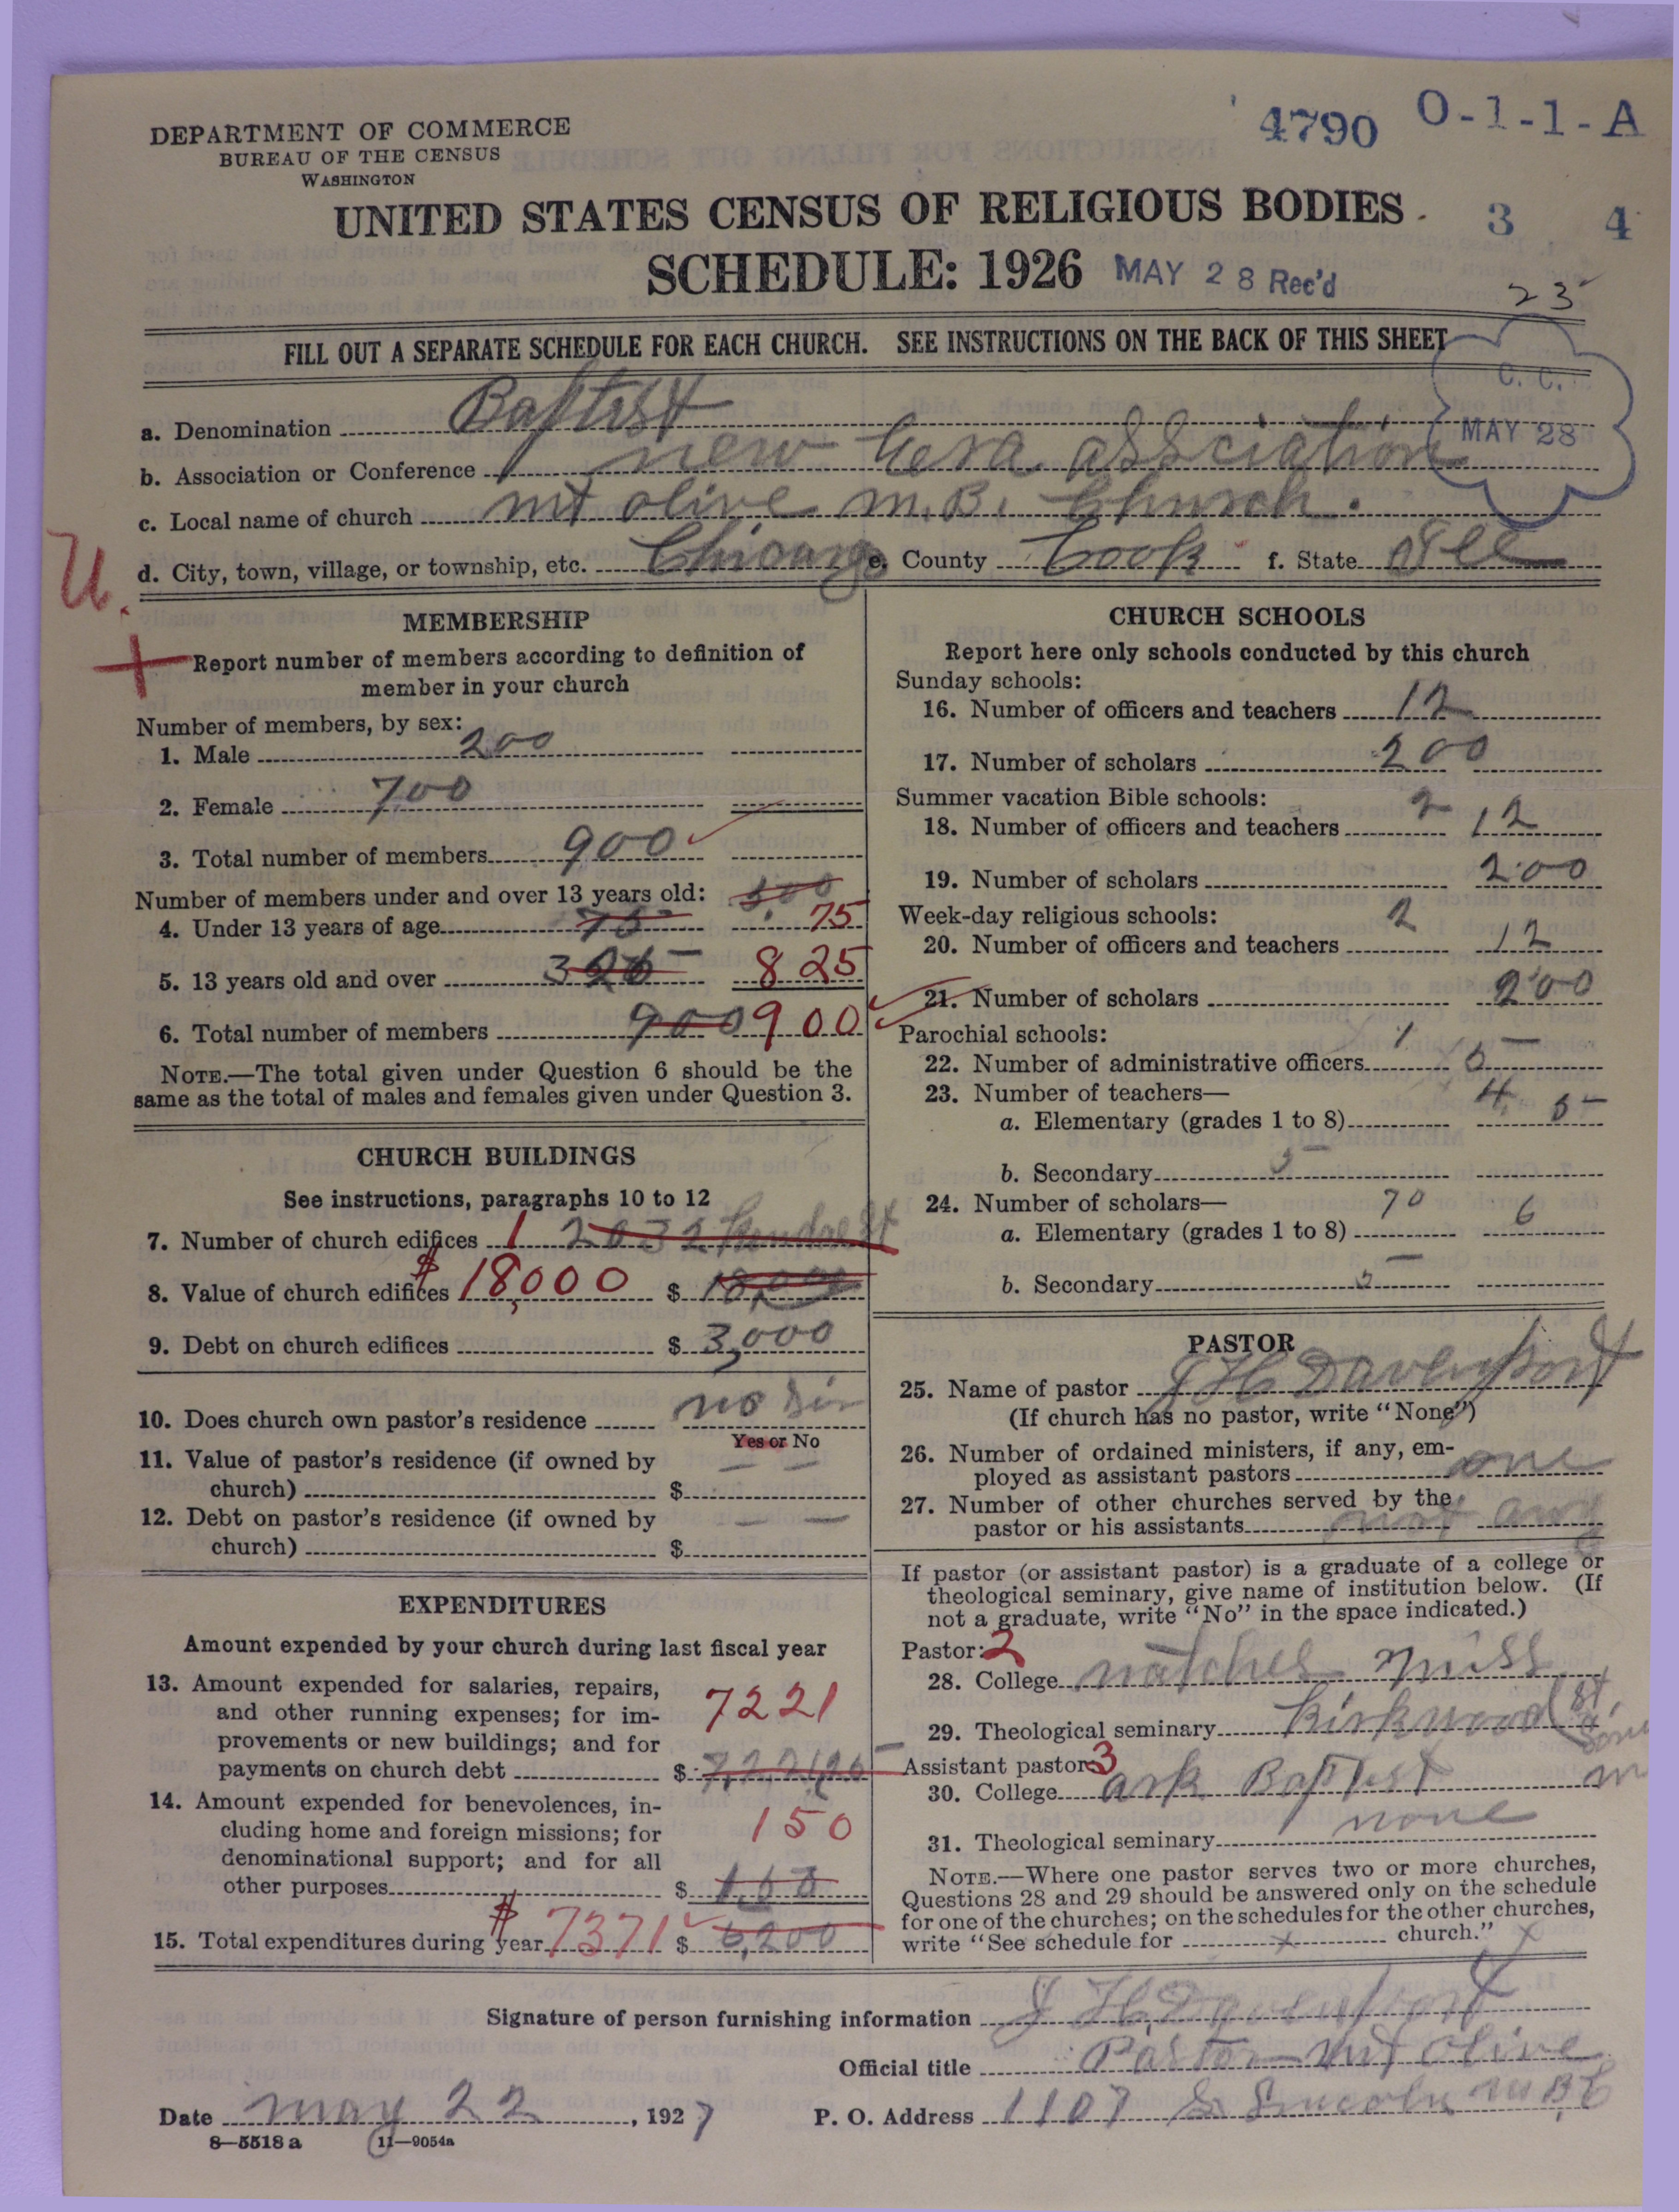 4790 O-1-1-A
DEPARTMENT OF COMMERCE
BUREAU OF THE CENSUS
WASHINGTON
UNITED STATES CENSUS OF RELIGIOUS BODIES
3 4
SCHEDULE: 1926 MAY 28 Rec'd
23
FILL OUT A SEPARATE SCHEDULE FOR EACH CHURCH. SEE INSTRUCTIONS ON THE BACK OF THIS SHEET
C. C.
MAY 28
a. Denomination Baptist
b. Association or Conference new Eera assciation
c. Local name of church mt olive m. B. Church.
d. City, town, village, or township, etc. Chicargo e. County Cook f. State Ill
U.
MEMBERSHIP
Report number of members according to definition of
member in your church
Number of members, by sex:
1. Male 200
2. Female 700
3. Total number of members 900
Number of members under and over 13 years old: 500
4. Under 13 years of age 75 75
5. 13 years old and over 325 825
6. Total number of members 900 900
NOTE.—The total given under Question 6 should be the
same as the total of males and females given under Question 3.
CHURCH BUILDINGS
See instructions, paragraphs 10 to 12
7. Number of church edifices 1 2032 St
8. Value of church edifices $18,000 $ 18,000
9. Debt on church edifices $ 3,000
10. Does church own pastor's residence no Sir
Yes or No
11. Value of pastor's residence (if owned by
church) $ — —
12. Debt on pastor's residence (if owned by
church) $ — —
EXPENDITURES
Amount expended by your church during last fiscal year
13. Amount expended for salaries, repairs,
and other running expenses; for im-
provements or new buildings; and for
payments on church debt 7221
$ 7,221,26
14. Amount expended for benevolences, in-
cluding home and foreign missions; for
denominational support; and for all
other purposes 150
$
15. Total expenditures during year $7371 $ 6,200
CHURCH SCHOOLS
Report here only schools conducted by this church
Sunday schools:
16. Number of officers and teachers 12
17. Number of scholars 200
Summer vacation Bible schools:
18. Number of officers and teachers 2 12
19. Number of scholars 200
Week-day religious schools:
20. Number of officers and teachers 2 12
21. Number of scholars 200
Parochial schools:
22. Number of administrative officers 1 5
23. Number of teachers—
a. Elementary (grades 1 to 8) 4 5
b. Secondary 5
24. Number of scholars—
a. Elementary (grades 1 to 8) 70 6
b. Secondary 5
PASTOR
25. Name of pastor J H Davenport
(If church has no pastor, write "None")
26. Number of ordained ministers, if any, em-
ployed as assistant pastors one
27. Number of other churches served by the
pastor or his assistants not any
If pastor (or assistant pastor) is a graduate of a college or
theological seminary, give name of institution below. (If
not a graduate, write "No" in the space indicated.)
Pastor: 2
28. College natches miss
29. Theological seminary Kirkwood St
Assistant pastor: 3
30. College ark Baptist
31. Theological seminary none
NOTE.—Where one pastor serves two or more churches,
Questions 28 and 29 should be answered only on the schedule
for one of the churches; on the schedules for the other churches,
write "See schedule for x church." x
Signature of person furnishing information J H Davenport
Official title Pastor mt olive
Date may 22, 1927 P. O. Address 1107 S Lincoln M B C
8—5518 a 11—9054a